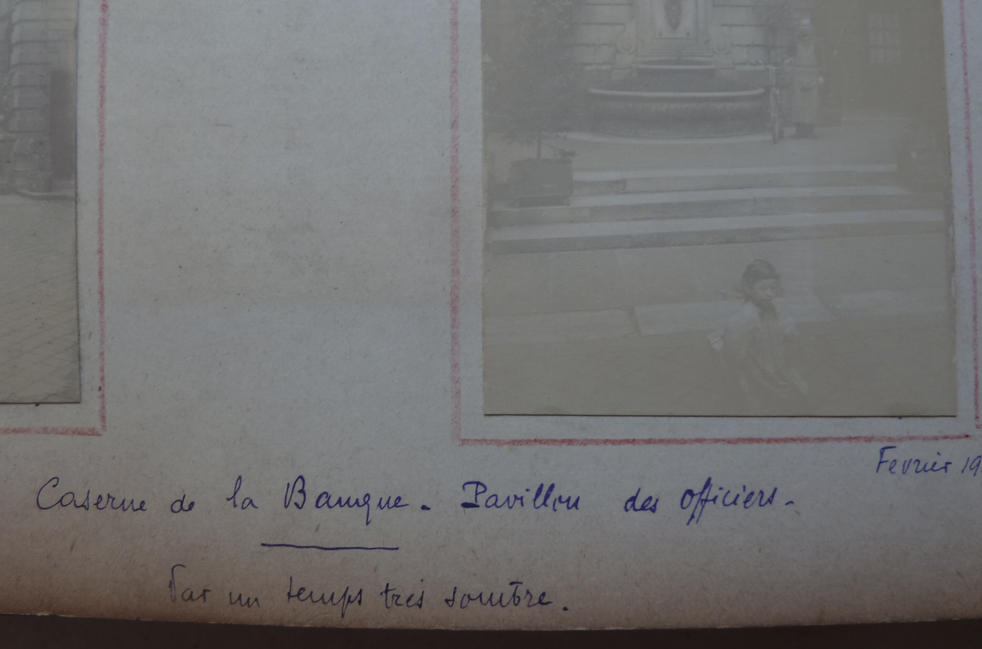 Fevrier 19
Caserne de la Banque. Pavillon des officiers.
Par un temps très sombre.